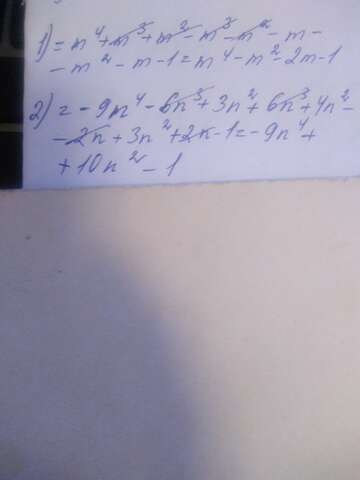 1) = m⁴ + m³ + m² - m³ - m² - m -
- m² - m - 1 = m⁴ - m² - 2m - 1
2) = - 9n⁴ - 6n³ + 3n² + 6n³ + 4n² -
- 2n + 3n² + 2n - 1 = - 9n⁴ +
+ 10n² - 1